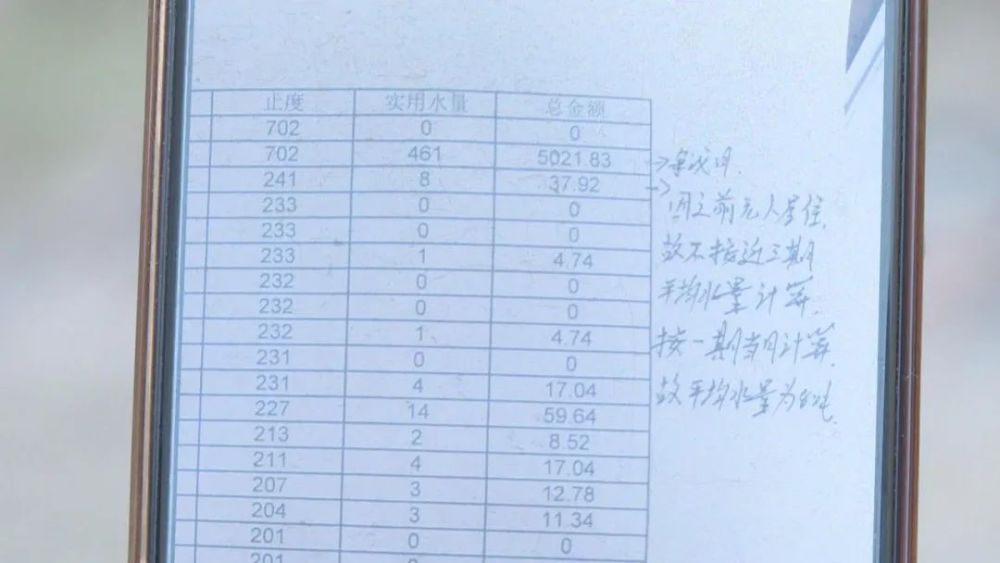 止度 实用水量 总金额
702 0 0
702 461 5021.83
241 8 37.92
因之前无人居住.
233 0 0
233 0 0
故不按近三期
233 1 4.74
232 0 0
平均水量计算.
232 0 0
232 1 4.74
按一期当月计算.
231 0 0
231 4 17.04
故平均水量为8吨
227 14 59.64
213 2 8.52
211 4 17.04
207 3 12.78
204 3 11.34
201 0 0
201